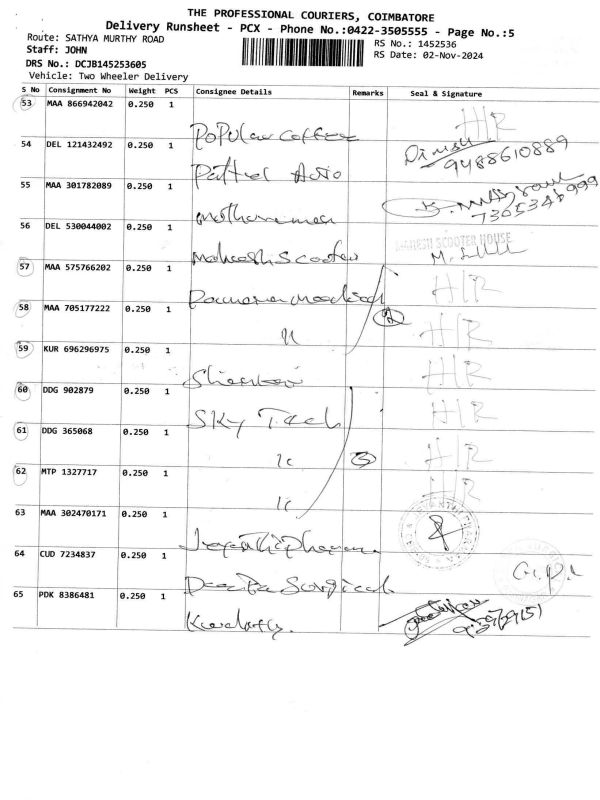 THE PROFESSIONAL COURIERS, COIMBATORE
Delivery Runsheet - PCX - Phone No.:0422-3505555 - Page No.:5
Route: SATHYA MURTHY ROAD
RS No.: 1452536
Staff: JOHN
RS Date: 02-Nov-2024
DRS No.: DCJB145253605
Vehicle: Two Wheeler Delivery
S No Consignment No Weight PCS Consignee Details Remarks Seal & Signature
53 MAA 866942042 0.250 1
Popular coffee H/R
54 DEL 121432492 0.250 1
Pattel Auto 9488610889
55 MAA 301782089 0.250 1
7305348999
56 DEL 530044002 0.250 1
MAHESH SCOOTER HOUSE
Mahesh Scooter
57 MAA 575766202 0.250 1
H/R
58 MAA 705177222 0.250 1
2
H/R
59 KUR 696296975 0.250 1
H/R
60 DDG 902879 0.250 1
SKY Tech H/R
61 DDG 365068 0.250 1
3 H/R
62 MTP 1327717 0.250 1
H/R
63 MAA 302470171 0.250 1
64 CUD 7234837 0.250 1
Deepa Surgical
65 PDK 8386481 0.250 1